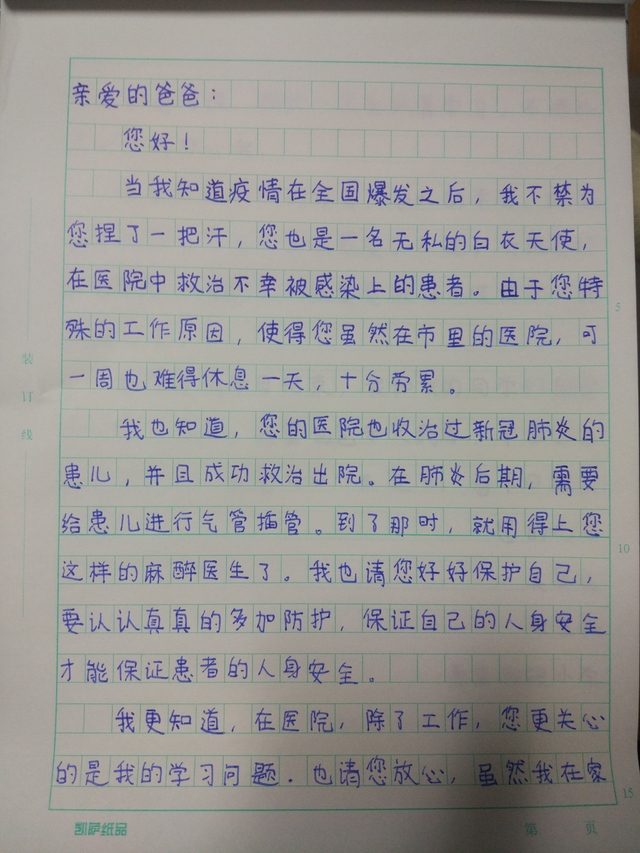 亲爱的爸爸：
您好！
当我知道疫情在全国爆发之后，我不禁为
您捏了一把汗，您也是一名无私的白衣天使，
在医院中救治不幸被感染上的患者。由于您特
殊的工作原因，使得您虽然在市里的医院，可
一周也难得休息一天，十分劳累。
我也知道，您的医院也收治过新冠肺炎的
患儿，并且成功救治出院。在肺炎后期，需要
给患儿进行气管插管。到了那时，就用得上您
这样的麻醉医生了。我也请您好好保护自己，
要认认真真的多加防护，保证自己的人身安全
才能保证患者的人身安全。
我更知道，在医院，除了工作，您更关心
的是我的学习问题．也请您放心，虽然我在家
装
订
线
5
10
15
凯萨纸品
第 页